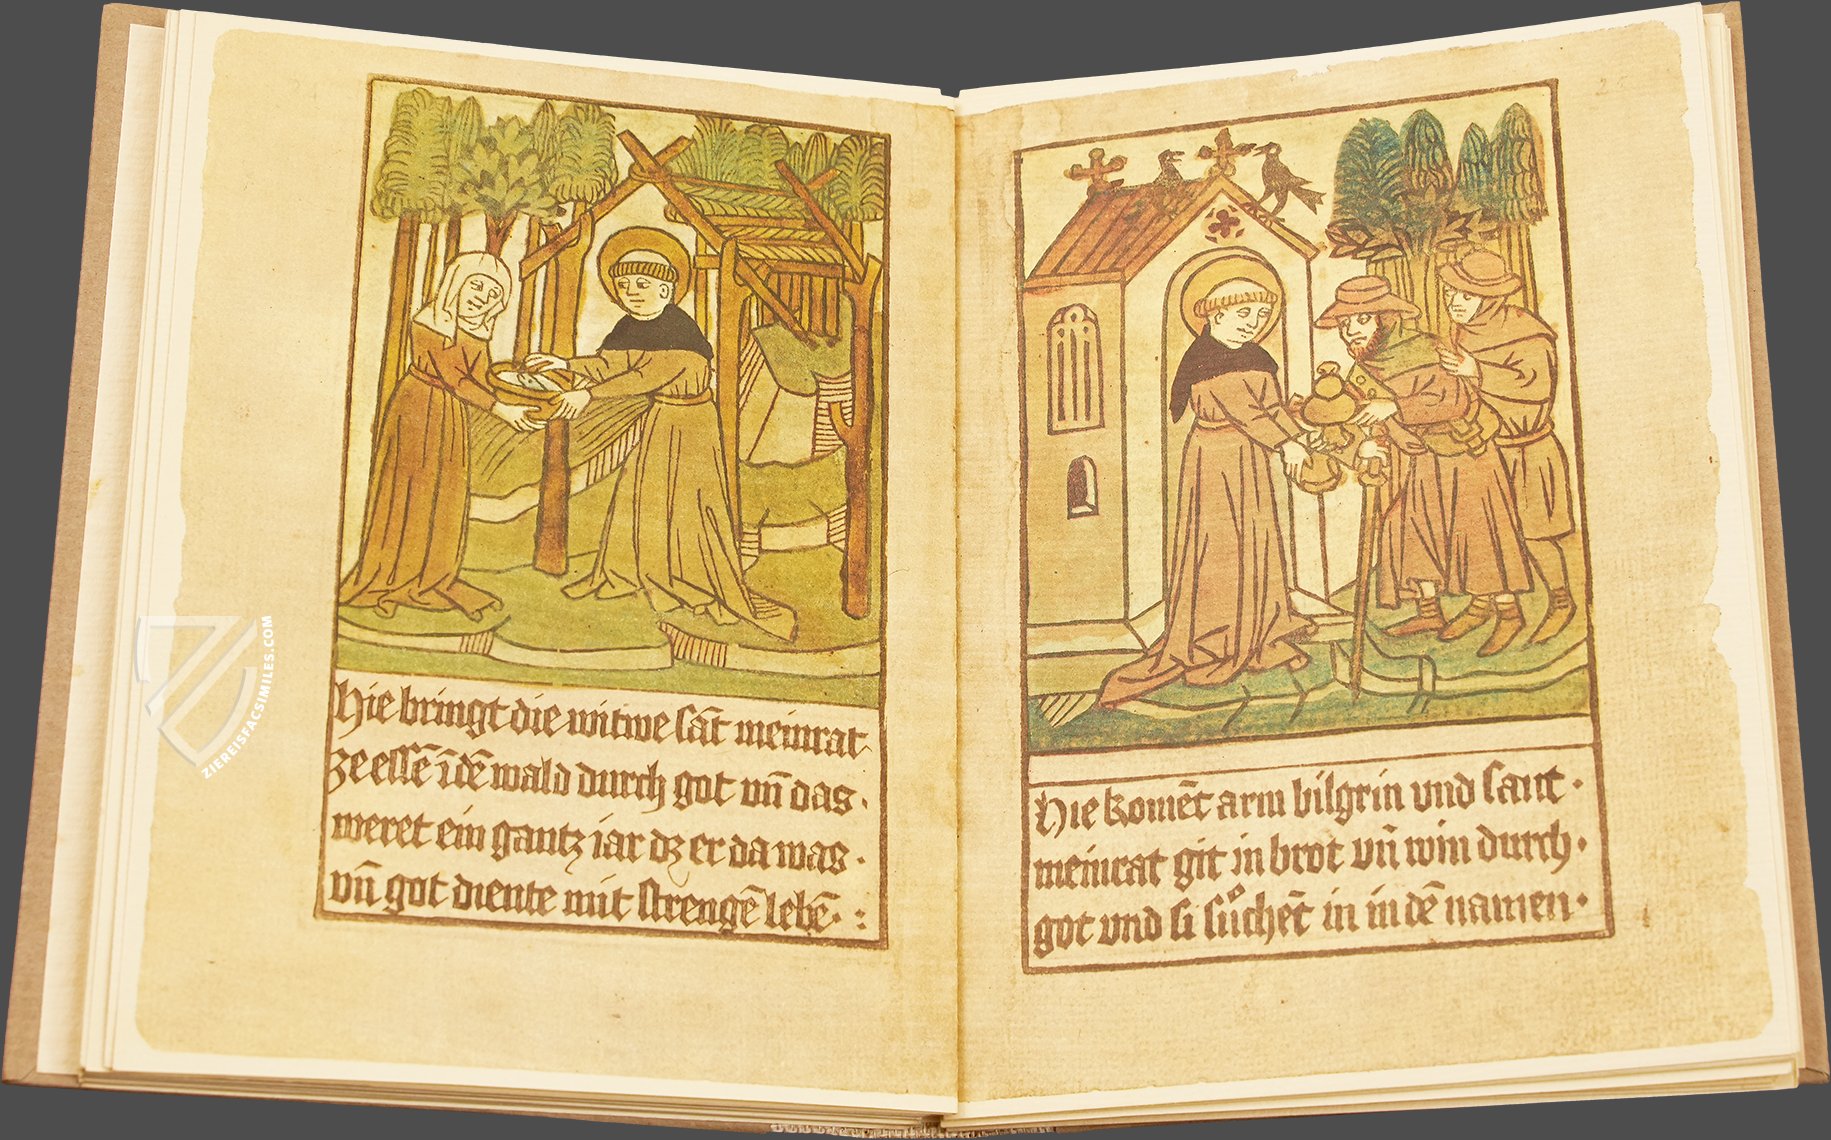 Hie bringt die witwe sāt meinrat
ze essē ī dē wald durch got vn̄ das·
weret ein gantz iar dz er da was·
vn̄ got diente mit strengē lebē·:
Hie komēt arm bilgrin vnd sant·
meinrat git in brot vn̄ win durch·
got vnd si sůchēt in in dē namen·
ZIEREISFACSIMILES.COM